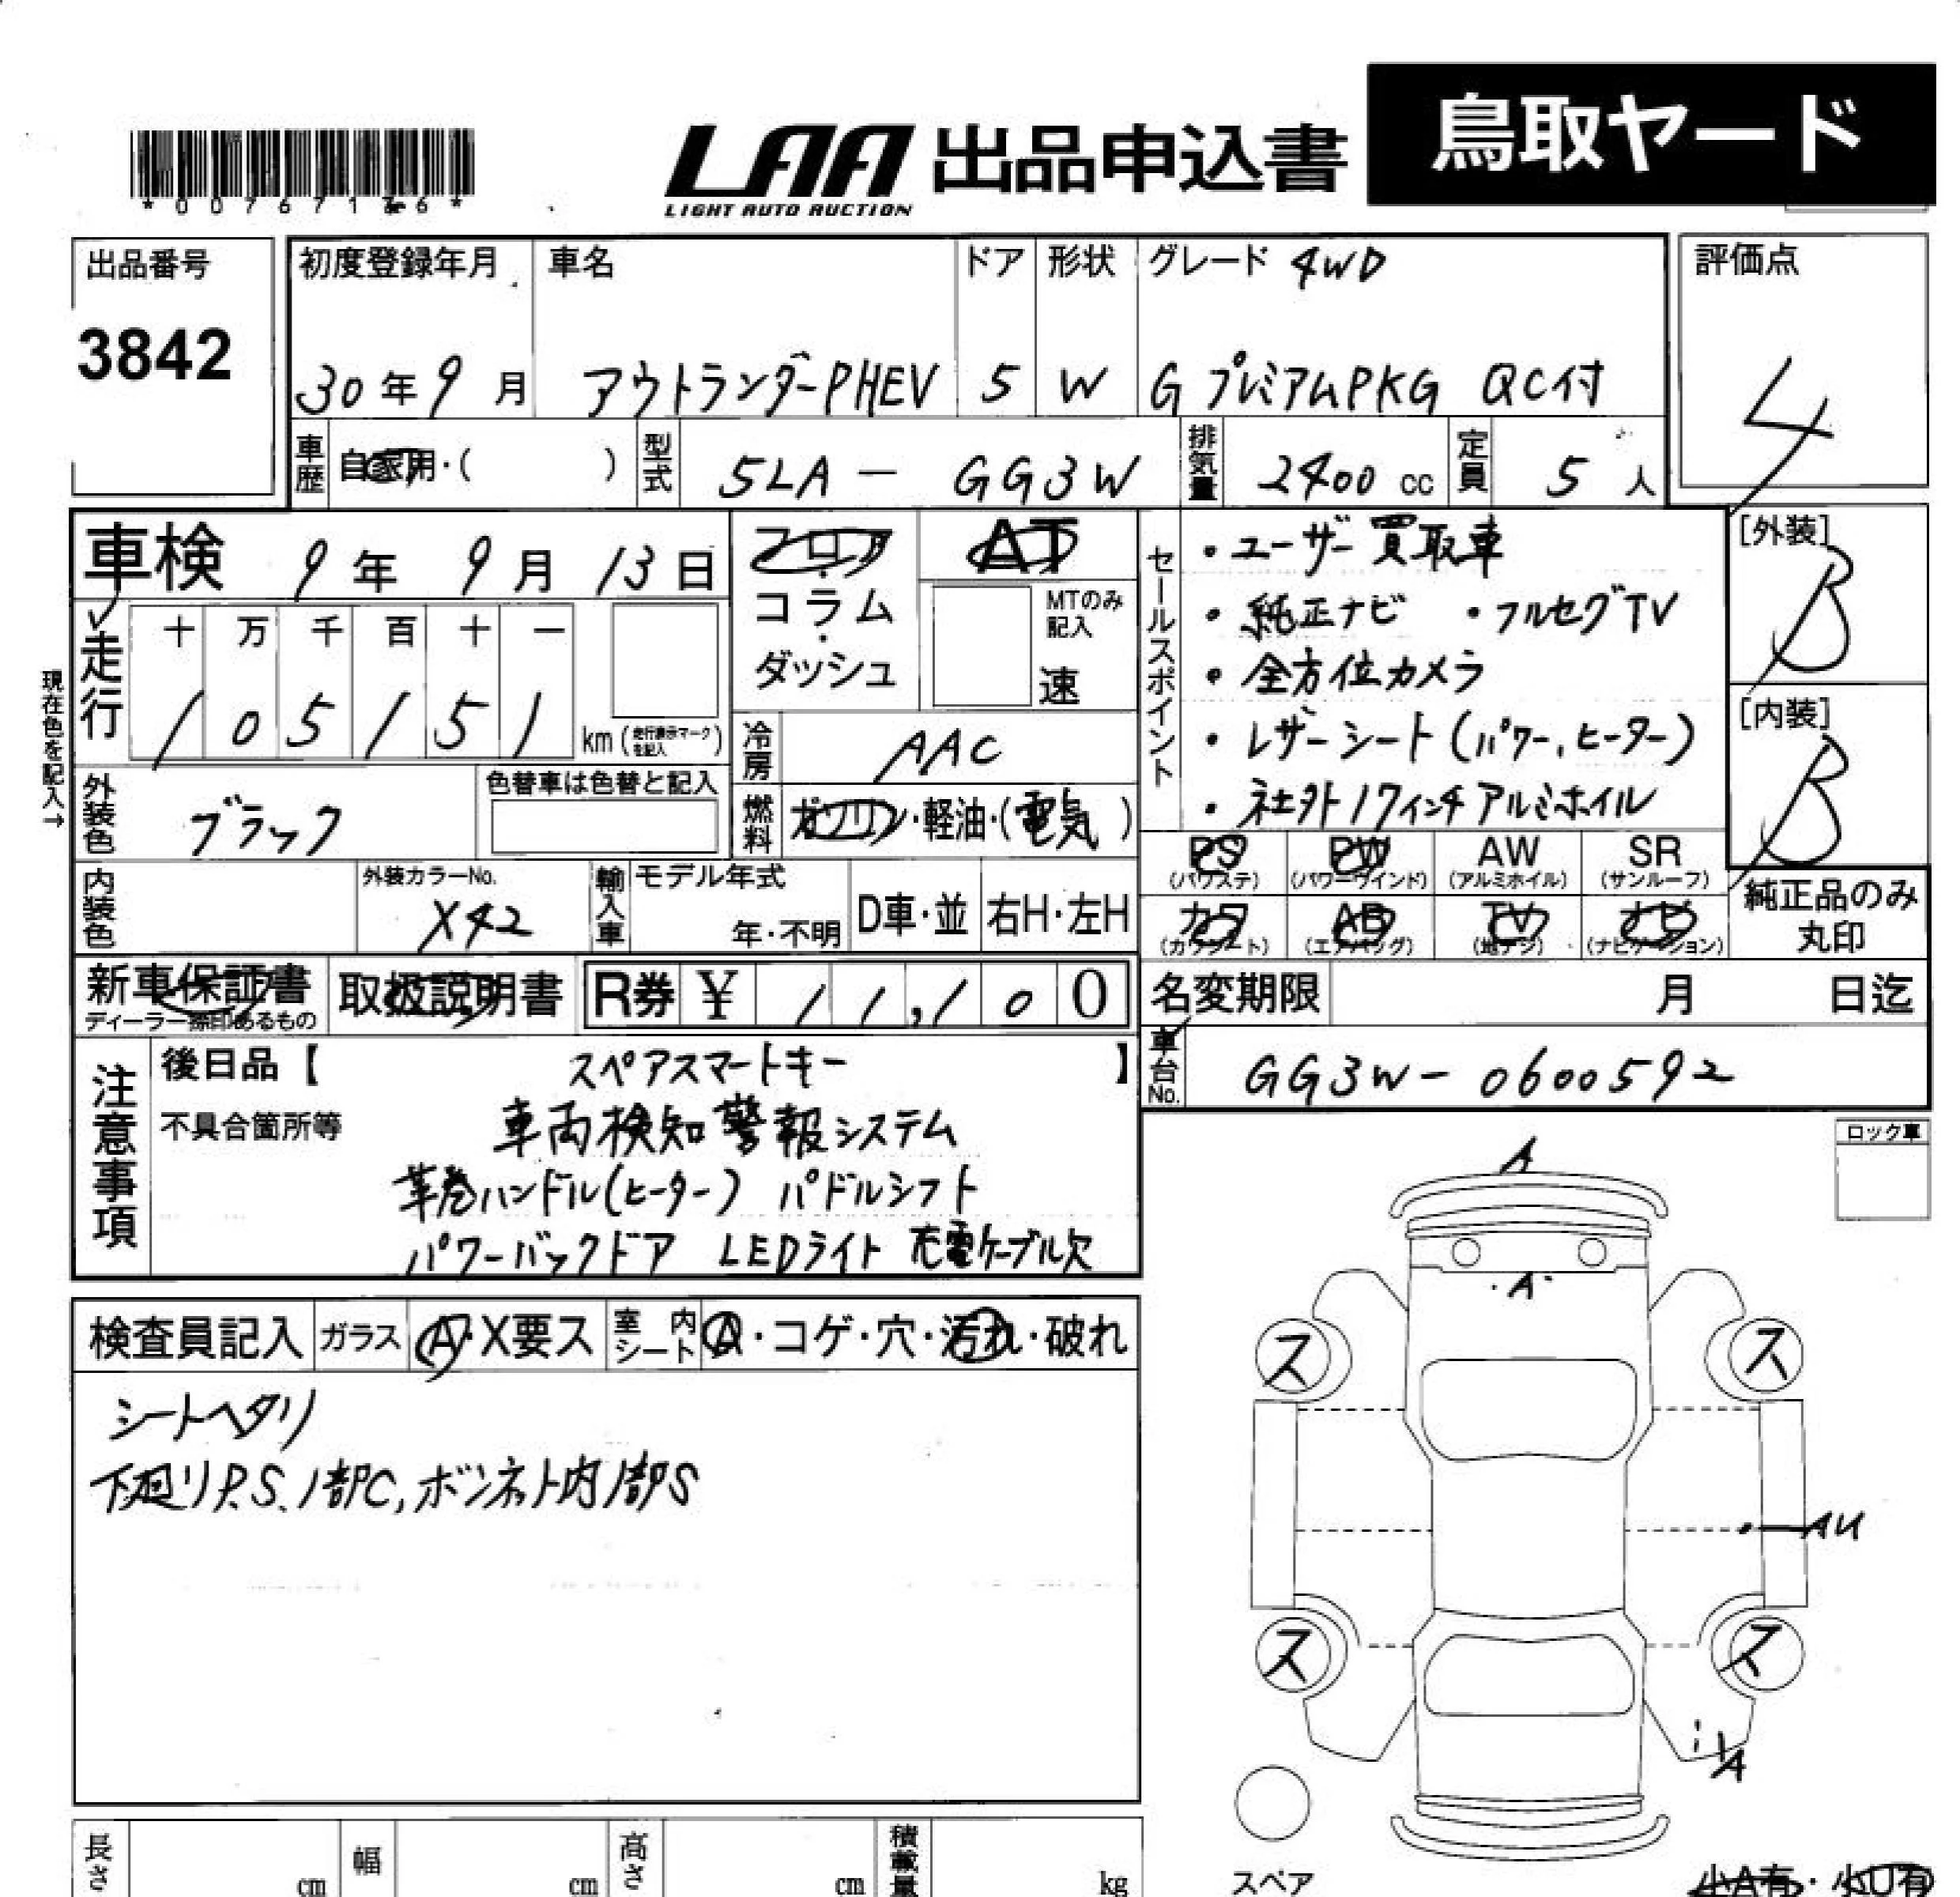 鳥取ヤード
LAA 出品申込書
LIGHT AUTO AUCTION
出品番号
3842
初度登録年月
30年9月
車名
アウトランダーPHEV
ドア
5
形状
W
グレード 4WD
GプレミアムPKG QC付
評価点
4
車歴 自家用・( )
型式 5LA - GG3W
排気量 2400 cc
定員 5人
車検 9年 9月 13日
フロア・コラム・ダッシュ
AT
MTのみ記入
速
セールスポイント
・ユーザー買取車
・純正ナビ ・フルセグTV
・全方位カメラ
・レザーシート(パワー,ヒーター)
・社外17インチアルミホイル
[外装]
B
[内装]
B
現在色を記入→
走行
十 万 千 百 十 一
1 0 5 1 5 1
km (走行表示マークを記入)
冷房 AAC
外装色 ブラック
色替車は色替と記入
燃料 ガソリン・軽油・(電気)
内装色
外装カラーNo.
X42
輸入車
モデル年式
年・不明
D車・並
右H・左H
PS (パワステ)
PW (パワーウインド)
AW (アルミホイル)
SR (サンルーフ)
カワ (カワシート)
AB (エアバッグ)
TV (地デジ)
ナビ (ナビゲーション)
純正品のみ丸印
新車保証書
ディーラー捺印あるもの
取扱説明書
R券 ¥ 11,100
名変期限 月 日迄
車台No. GG3W-0600592
注意事項
後日品【 スペアスマートキー 】
不具合箇所等
車両検知警報システム
革巻ハンドル(ヒーター) パドルシフト
パワーバックドア LEDライト 充電ケーブル欠
ロック車
検査員記入
ガラス A・X要ス
室内シート A・コゲ・穴・汚れ・破れ
シートヘタリ
下廻りP.S.1部C,ボンネット内1部S
A
A
ス ス
AU
ス ス
A
スペア
小A有・小U有
長さ cm
幅 cm
高さ cm
積載量 kg